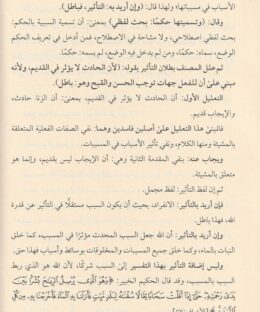 الأسباب في مسبباتها؛ ولهذا قال: (وإن أريد به: التأثير، فباطل).
وقال: (وتسميتها حكمًا: بحث لفظي) بمعنى: أن تسمية السببية بالحكم:
بحث لفظي اصطلاحي، ولا مشاحة في الاصطلاح، فمن أدخل في تعريف الحكم
الوضع، سماه: حكمًا، ومن لم يدخل فيه الوضع، لم يسمه: حكمًا.
ثم علل المصنف بطلان التأثير بقوله: (لأن الحادث لا يؤثر في القديم، ولأنه
مبني على أن للفعل جهات توجب الحسن والقبح وهو: باطل).
التعليل الأول: أن الحادث لا يؤثر في القديم، بمعنى: أن الزنا حادث،
والإيجاب قديم.
فانبنى هذا التعليل على أصلين فاسدين وهما: نفي الصفات الفعلية المتعلقة
بالمشيئة ومنها الكلام، ونفي تأثير الأسباب في المسببات.
ويجاب عنه: بنفي المقدمة الثانية وهي: أن الإيجاب ليس بقديم، وإنما هو
متعلق بالمشيئة.
ثم إن لفظ التأثير: لفظ مجمل.
فإن أريد بالتأثير: الانفراد، بحيث أن يكون السبب مستقلًا في التأثير عن قدرة
الله، فهذا باطل.
وإن أريد بالتأثير: أن الله جعل السبب المحدث مؤثرًا في المسبب، كما خلق
النبات بالماء، وكما خلق جميع المسببات والمخلوقات بوسائط وأسباب فهذا حق.
وليس إضافة التأثير بهذا التفسير إلى السبب شركًا، لأن الله هو الذي ربط
السبب بالمسبب، وقد قال الحكيم الخبير: ﴿وَهُوَ الَّذِي يُرْسِلُ الرِّيَاحَ بُشْرًا بَيْنَ
يَدَيْ رَحْمَتِهِ حَتَّى إِذَا أَقَلَّتْ سَحَابًا ثِقَالًا سُقْنَاهُ لِبَلَدٍ مَيِّتٍ فَأَنْزَلْنَا بِهِ الْمَاءَ فَأَخْرَجْنَا بِهِ مِنْ كُلِّ